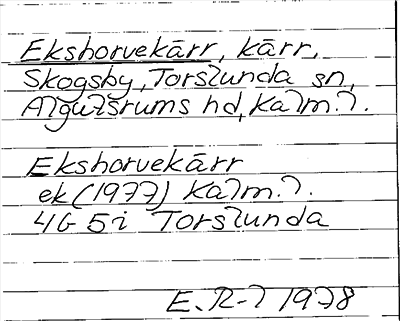 Ekshorvekärr, kärr,
Skogsby, Torslunda sn,
Algutsrums hd, Kalm. l.
Ekshorvekärr
ek (1977) Kalm. l.
4G 5i Torslunda
E. R-l 1978